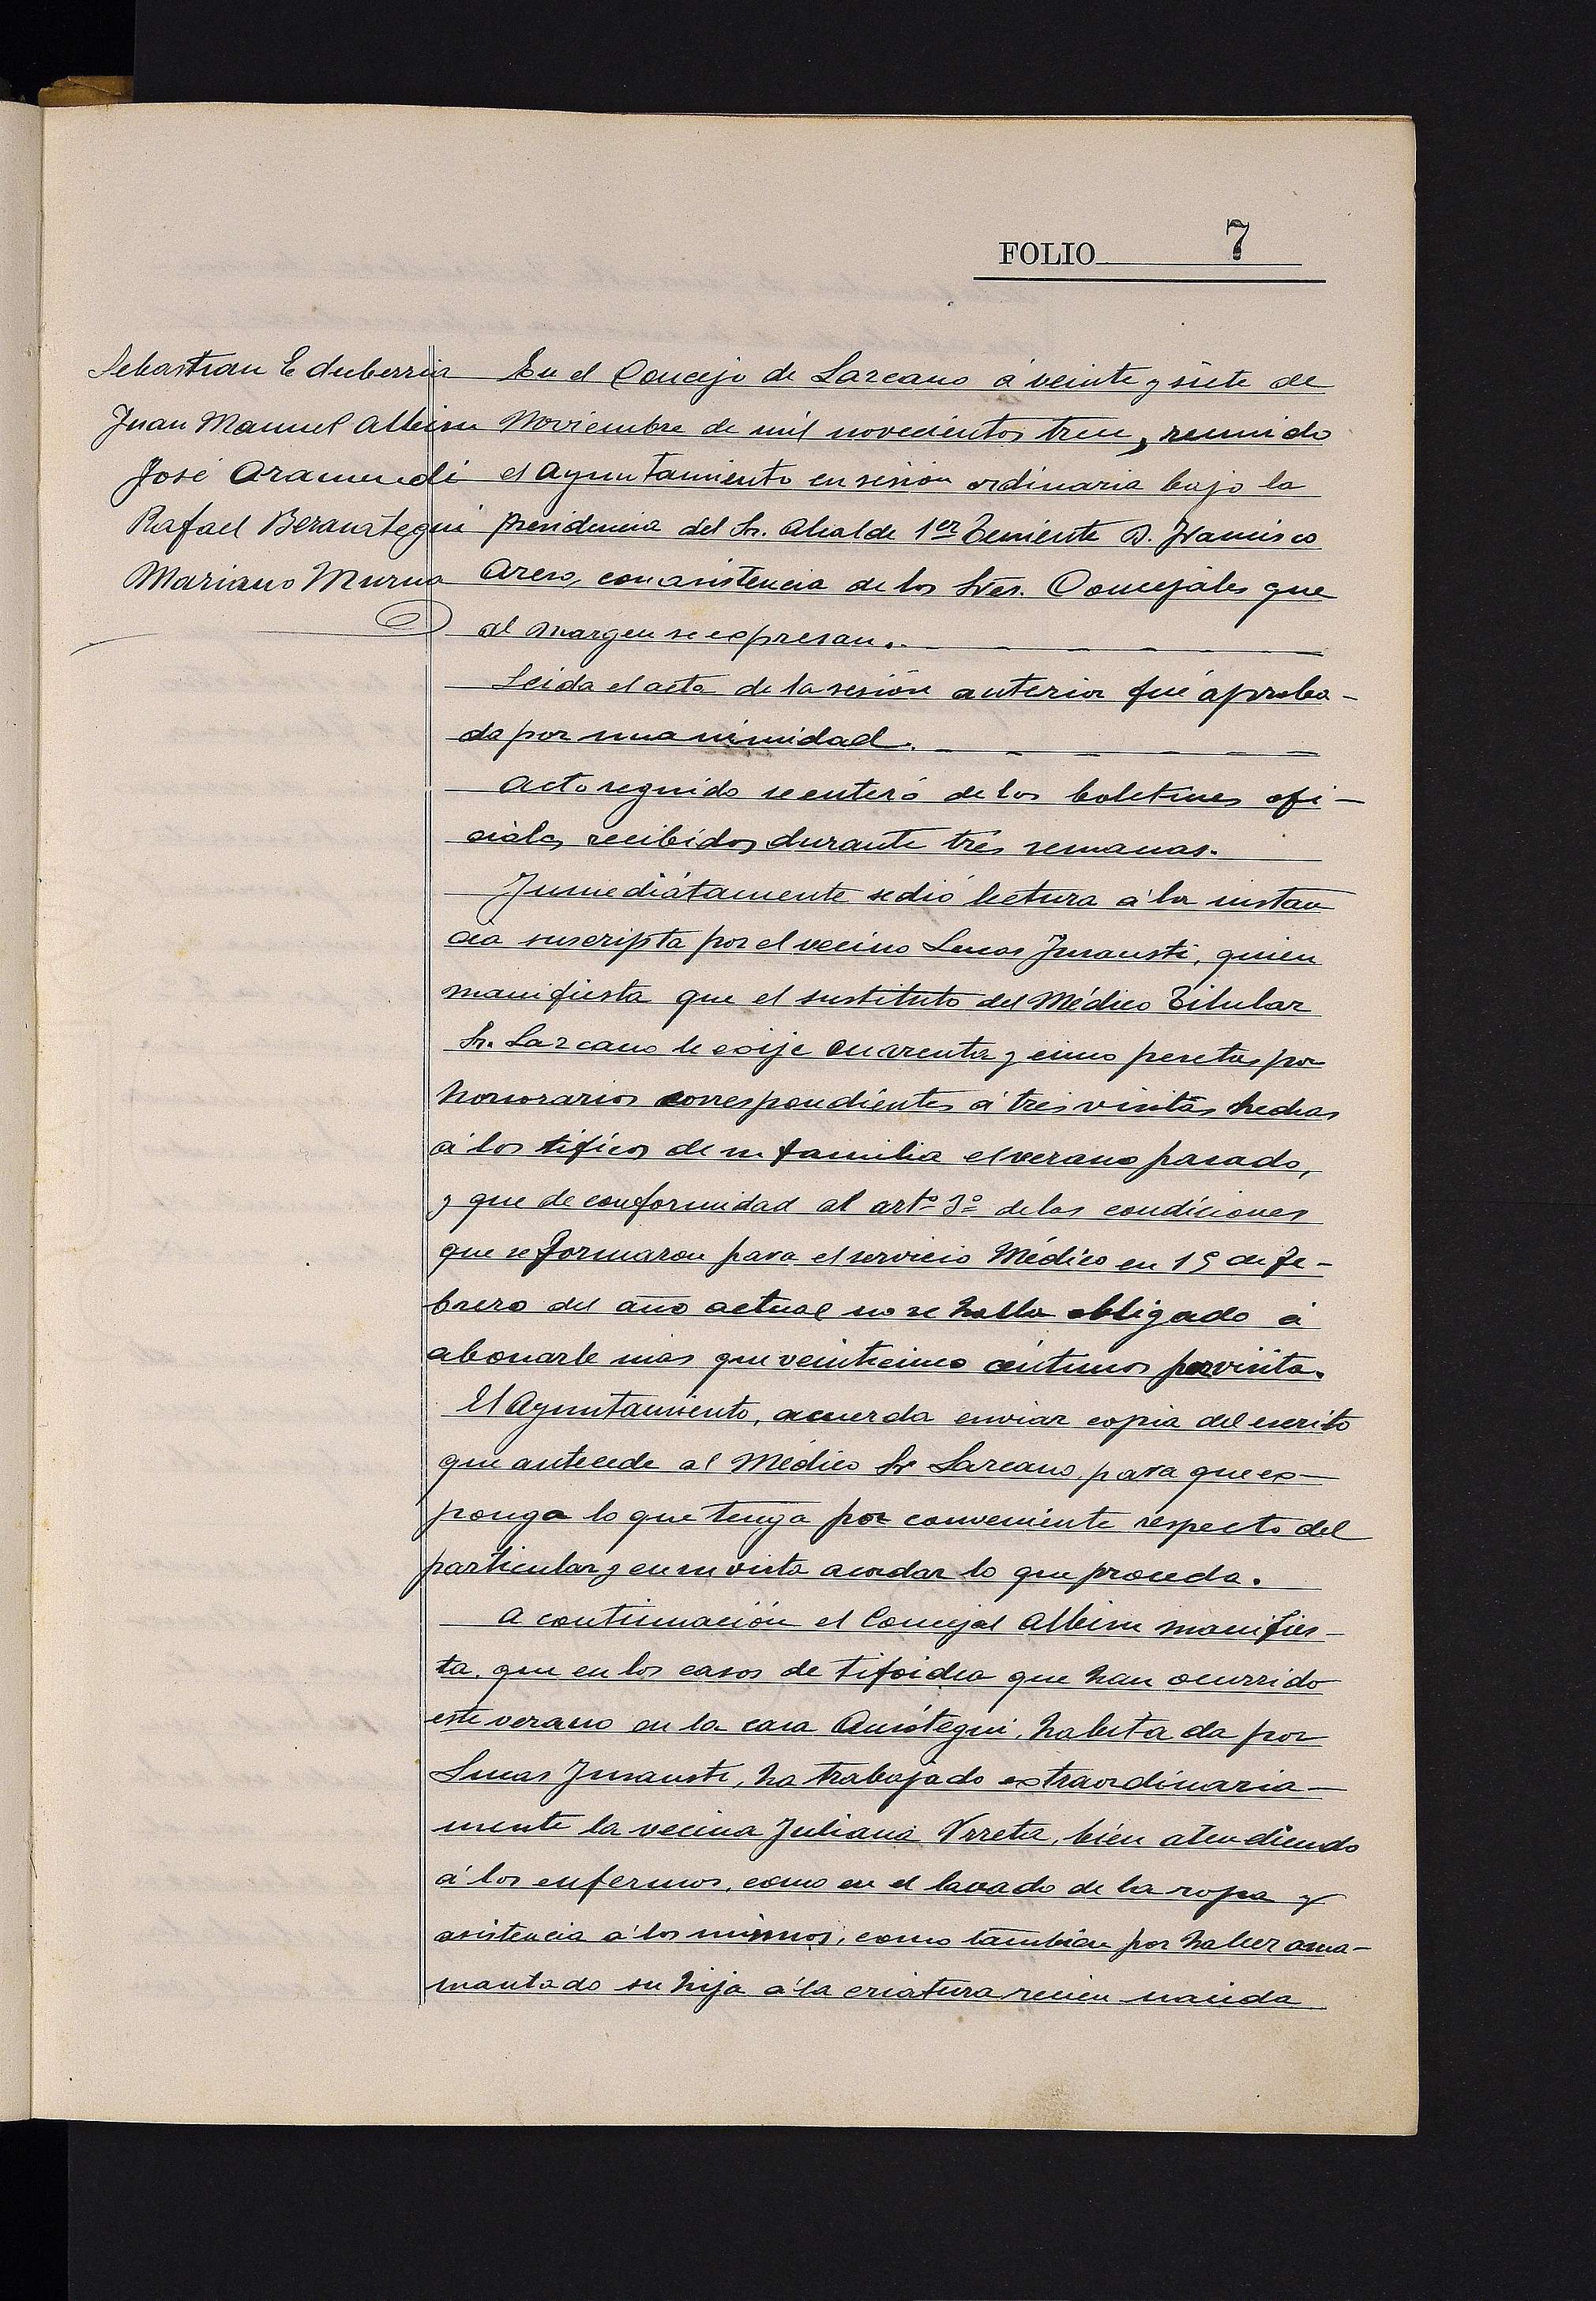 FOLIO 7
Sebastian Echeberria
Juan Manuel Albisu
José Aramendi
Rafael Beranategui
Mariano Murua
En el Concejo de Lazcano á veinte y siete de
Noviembre de mil novecientos trece, reunido
el Ayuntamiento en sesión ordinaria bajo la
presidencia del Sr. Alcalde 1er Teniente D. Francisco
Areso, con asistencia de los Sres. Concejales que
al margen se expresan.
Leida el acta de la sesión anterior fué aproba-
da por unanimidad.
Acto seguido se enteró de los boletines ofi-
ciales recibidos durante tres semanas.
Inmediátamente se dió lectura á la instan
cia suscripta por el vecino Lucas Insausti, quien
manifiesta que el sustituto del Médico Titular
Sr. Lazcano le exije cuarenta y cinco pesetas por
honorarios correspondientes á tres visitas hechas
á los tíficos de su familia el verano pasado,
y que de conformidad al artº 3º de las condiciones
que se formaron para el servicio Médico en 19 de Fe-
brero del año actual no se halla obligado á
abonarle mas que veinticinco céntimos por visita.
El Ayuntamiento, acuerda enviar copia del escrito
que antecede al Médico Sr Lazcano, para que ex-
ponga lo que tenga por conveniente respecto del
particular y en su vista acordar lo que proceda.
A continuación el Concejal Albisu manifies-
ta, que en los casos de tifoidea que han ocurrido
este verano en la casa habitada por
Lucas Insausti, ha trabajado extraordinaria-
mente la vecina Juliana Urreta, bién atendiendo
á los enfermos, como en el lavado de la ropa y
asistencia á los mismos, como también por haber ama-
mantado su hija á la criatura recien nacida